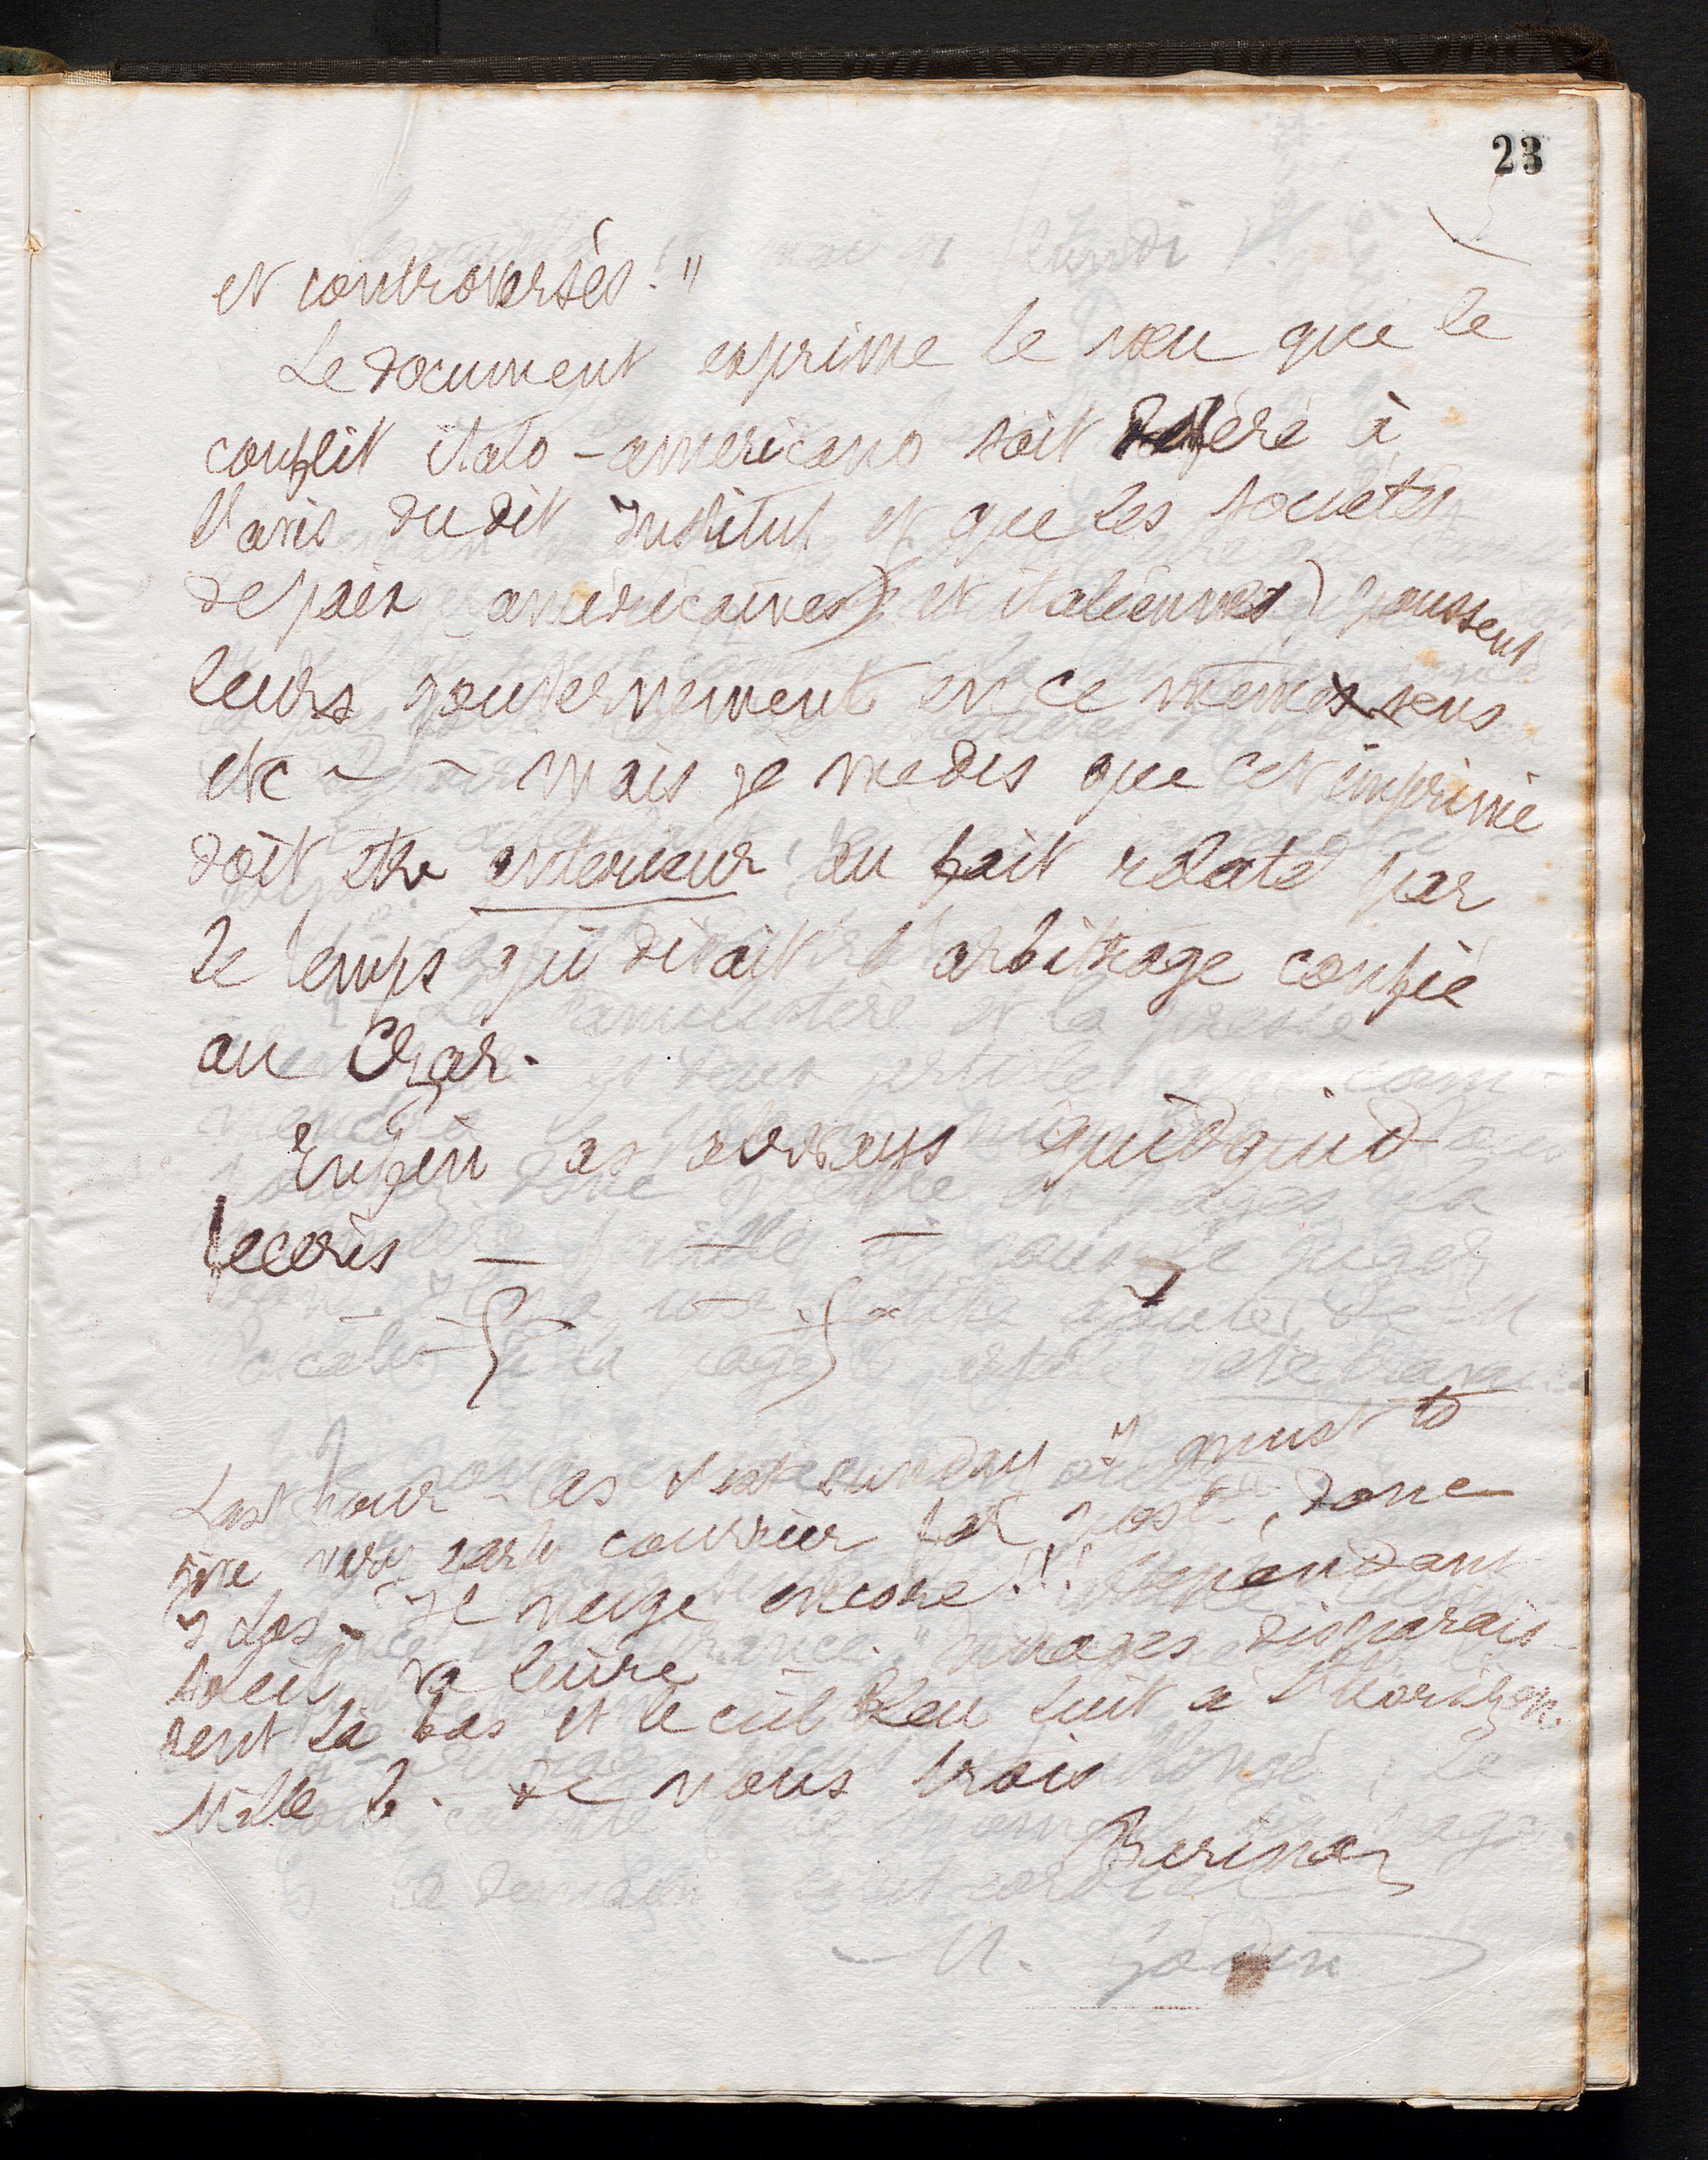 23
et controversés."
Le document exprime le vœu que le
conflit italo-americano soit référé à
l'avis dudit Institut et que les sociétés
de paix américaines) et italiennes) poussent
leurs gouvernement en ce même sens
etc - - mais je me dis que cet imprimé
doit être antérieur au fait relaté par
le temps qui disait l'arbitrage confié
au Czar.
Enfin as always quidquid
feceris —
Last hour - as yesterday I must to
give very early courrier for post, donc
Il neige encore!!! cependant
soleil va luire nuages disparais-
sent là bas et le ciel bleu luit à l'horizon.
Mille b. de nous trois